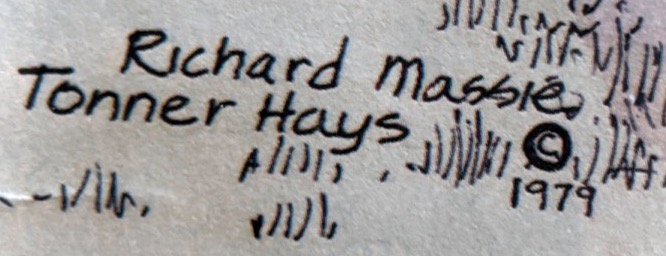 Richard Massie
Tonner Hays
©
1979